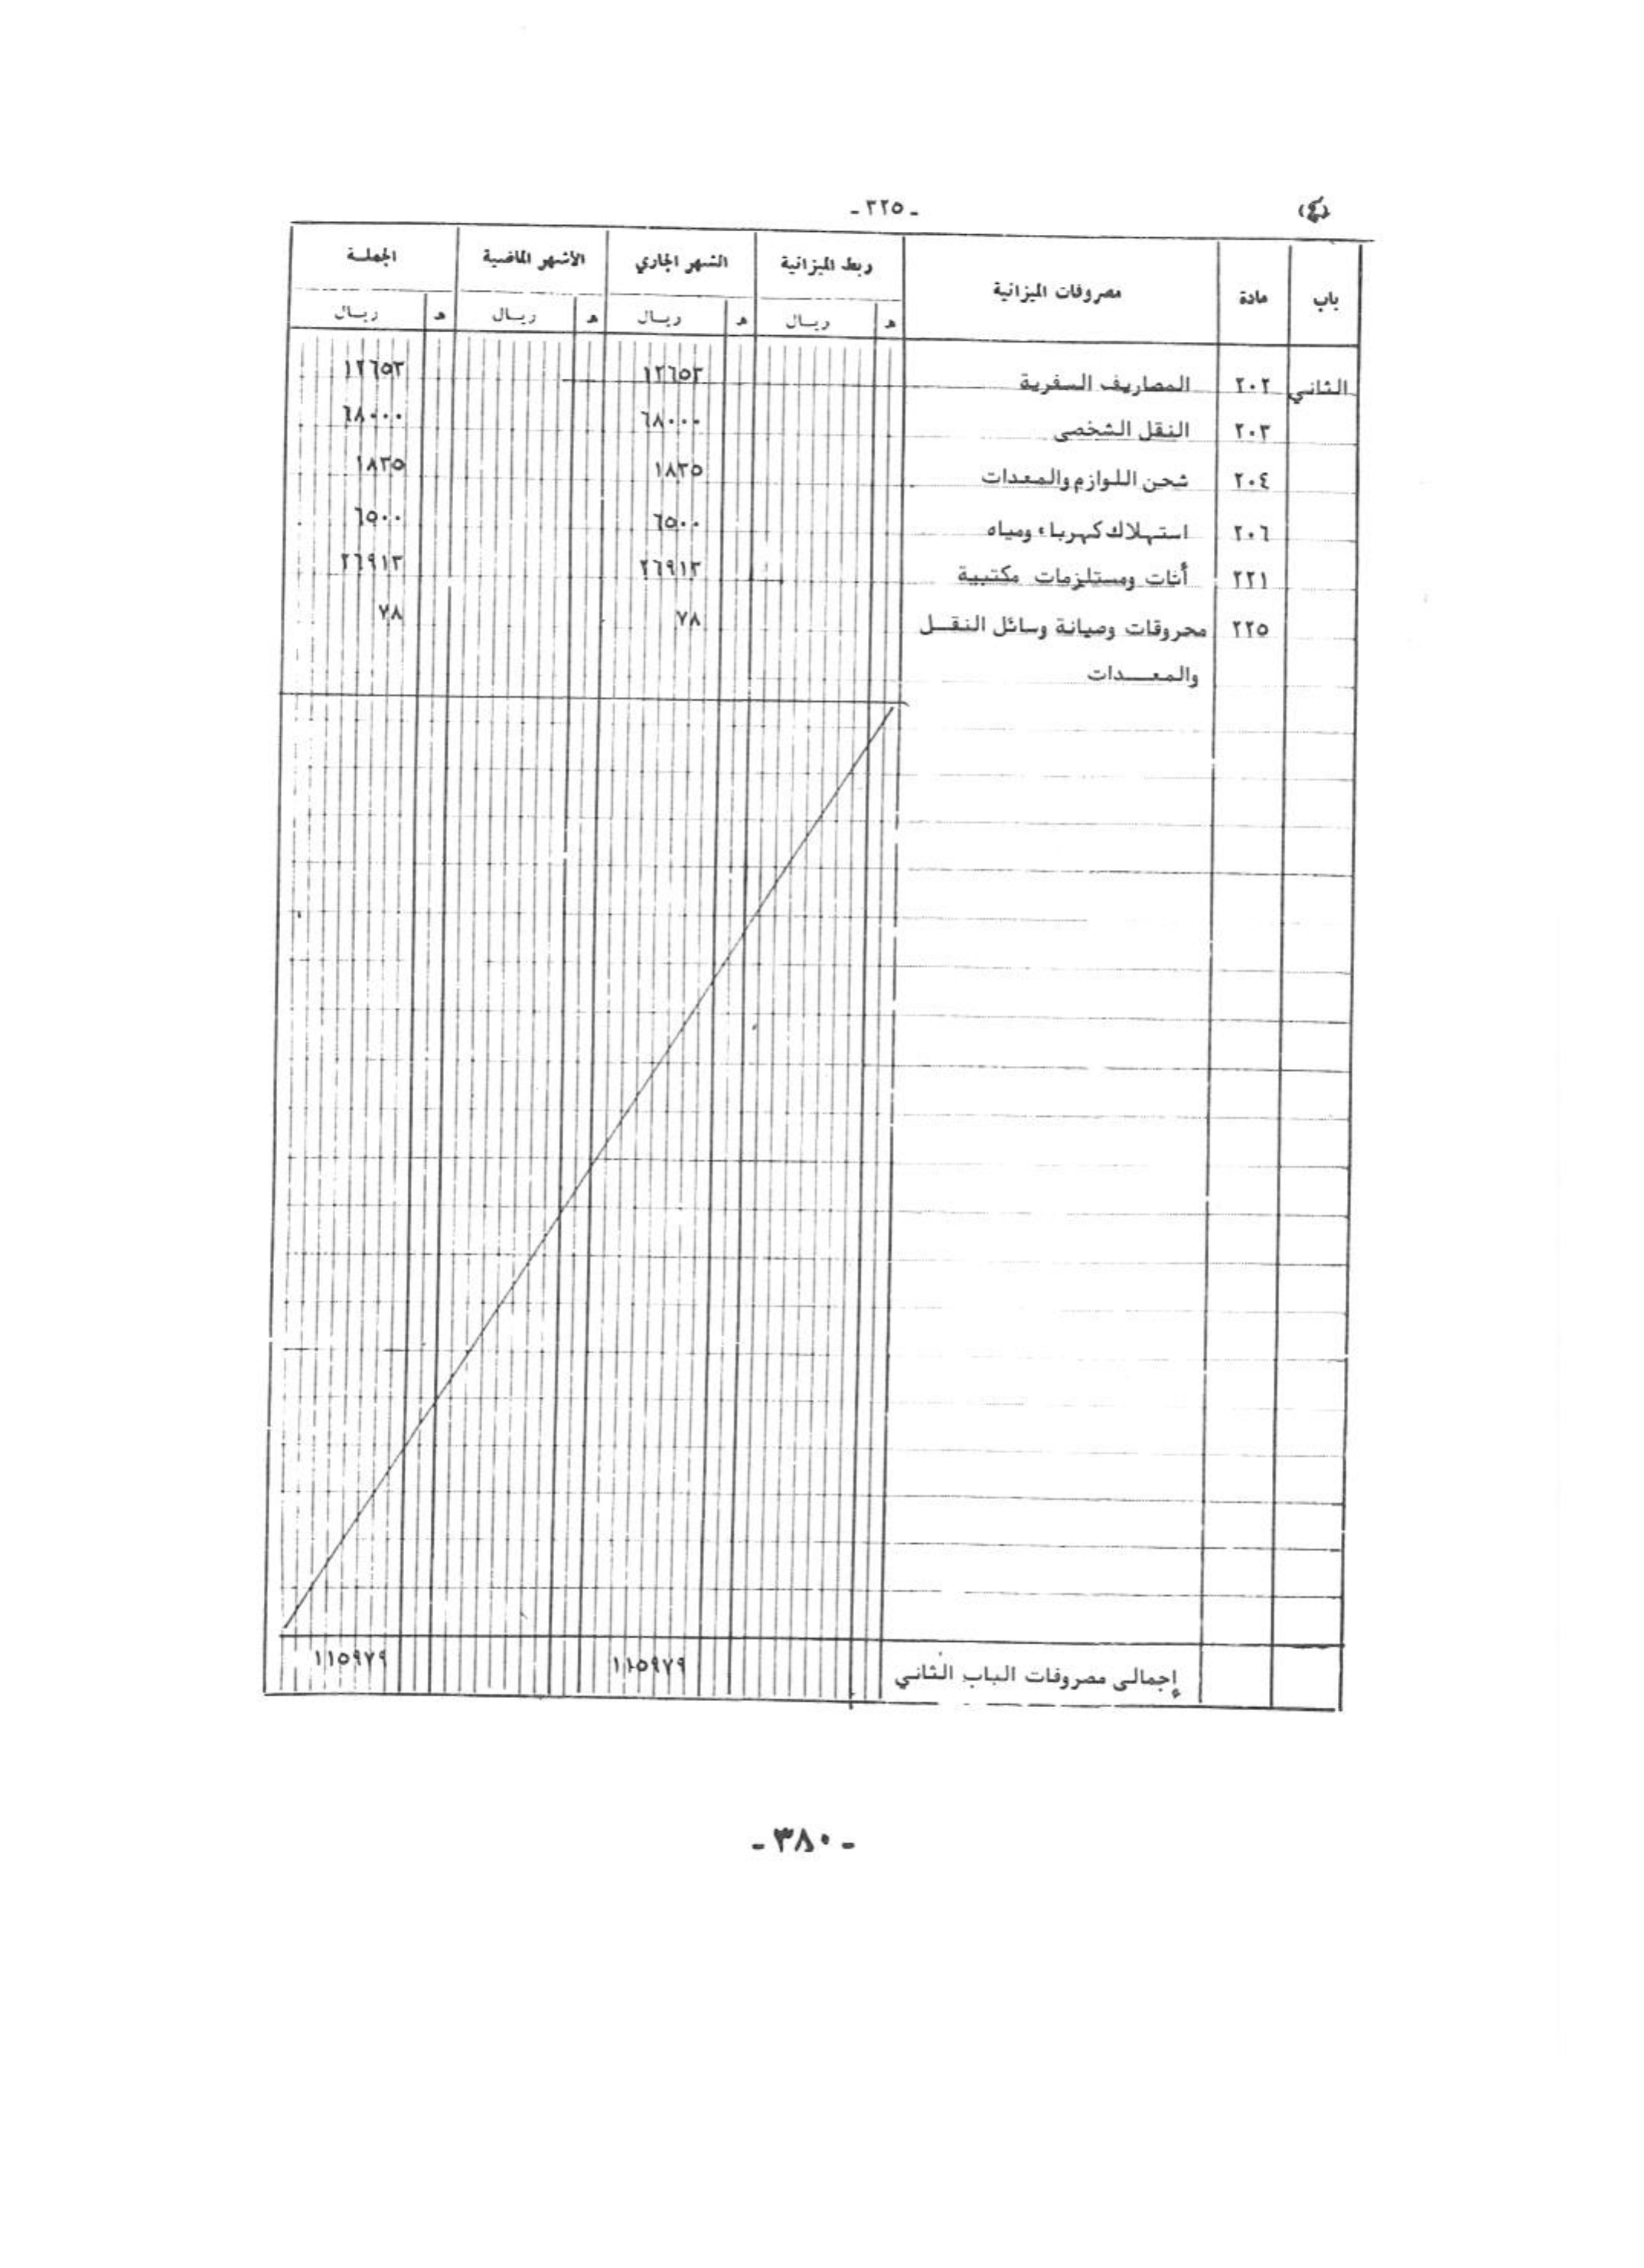 - ٣٢٥ -
باب مادة مصروفات الميزانية ربط الميزانية الشهر الجاري الأشهر الماضية الجملة
هـ ريال هـ ريال هـ ريال هـ ريال
الثاني ٢٠٢ المصاريف السفرية ١٢٦٥٣ ١٢٦٥٣
٢٠٣ النقل الشخصى ٦٨٠٠٠ ٦٨٠٠٠
٢٠٤ شحن اللوازم والمعدات ١٨٣٥ ١٨٣٥
٢٠٦ استهلاك كهرباء ومياه ٦٥٠٠ ٦٥٠٠
٢٢١ أثاث ومستلزمات مكتبية ٢٦٩١٣ ٢٦٩١٣
٢٢٥ محروقات وصيانة وسائل النقل ٧٨ ٧٨
والمعدات
إجمالى مصروفات الباب الثاني ١١٥٩٧٩ ١١٥٩٧٩
- ٣٨٠ -